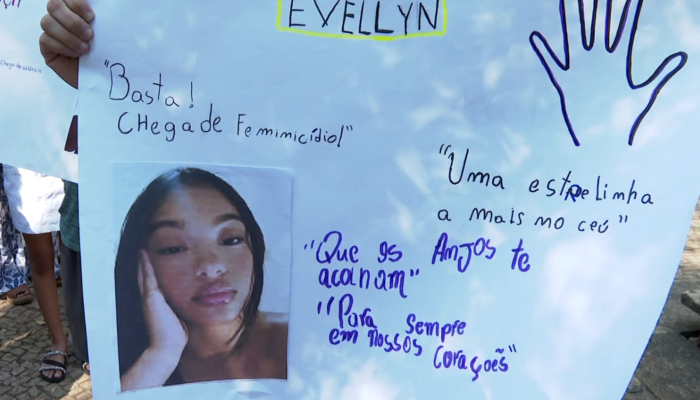 EVELLYN
"Basta!
CHega de Feminicídio!"
"Uma estrelinha
a mais no céu"
"Que os Anjos te
acanam"
"Para Sempre
em Nossos Corações"